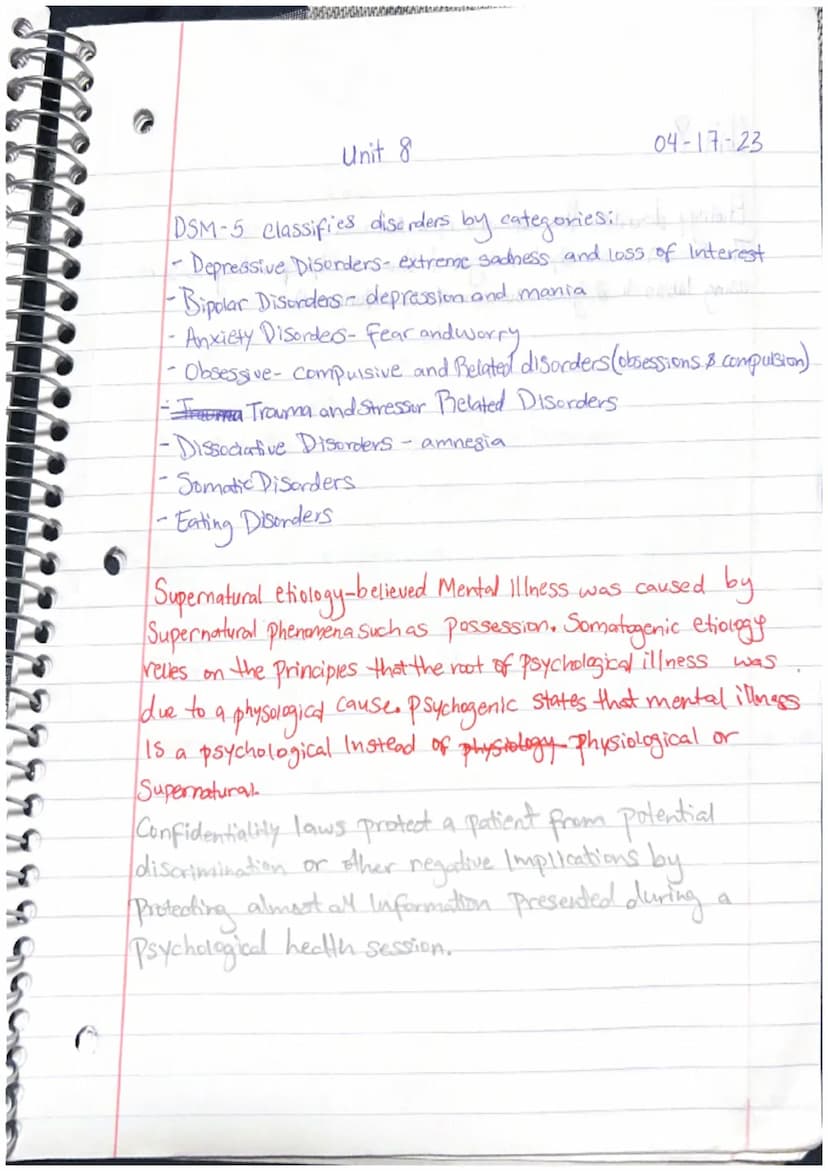 Unit 8
04-17-23
DSM-5 classifies disorders by categories:
- Depressive Disorders- extreme sadness and loss of interest
- Bipolar Disorders- depression and mania
- Anxiety Disorders- fear and worry
- Obsessive- compulsive and Related disorders (obsessions & compulsion)
- Trauma Trauma and Stressor Related Disorders
- Dissociative Disorders - amnesia
- Somatic Disorders
- Eating Disorders
Supernatural etiology-believed Mental illness was caused by
Supernatural phenomena such as possession. Somatogenic etiology
relies on the principles that the root of psychological illness was
due to a physological cause. Psychogenic states that mental illness
is a psychological instead of physiology physiological or
Supernatural.
Confidentiality laws protect a patient from potential
discrimination or other negative implications by
Protecting almost all information presented during a
psychological health session.